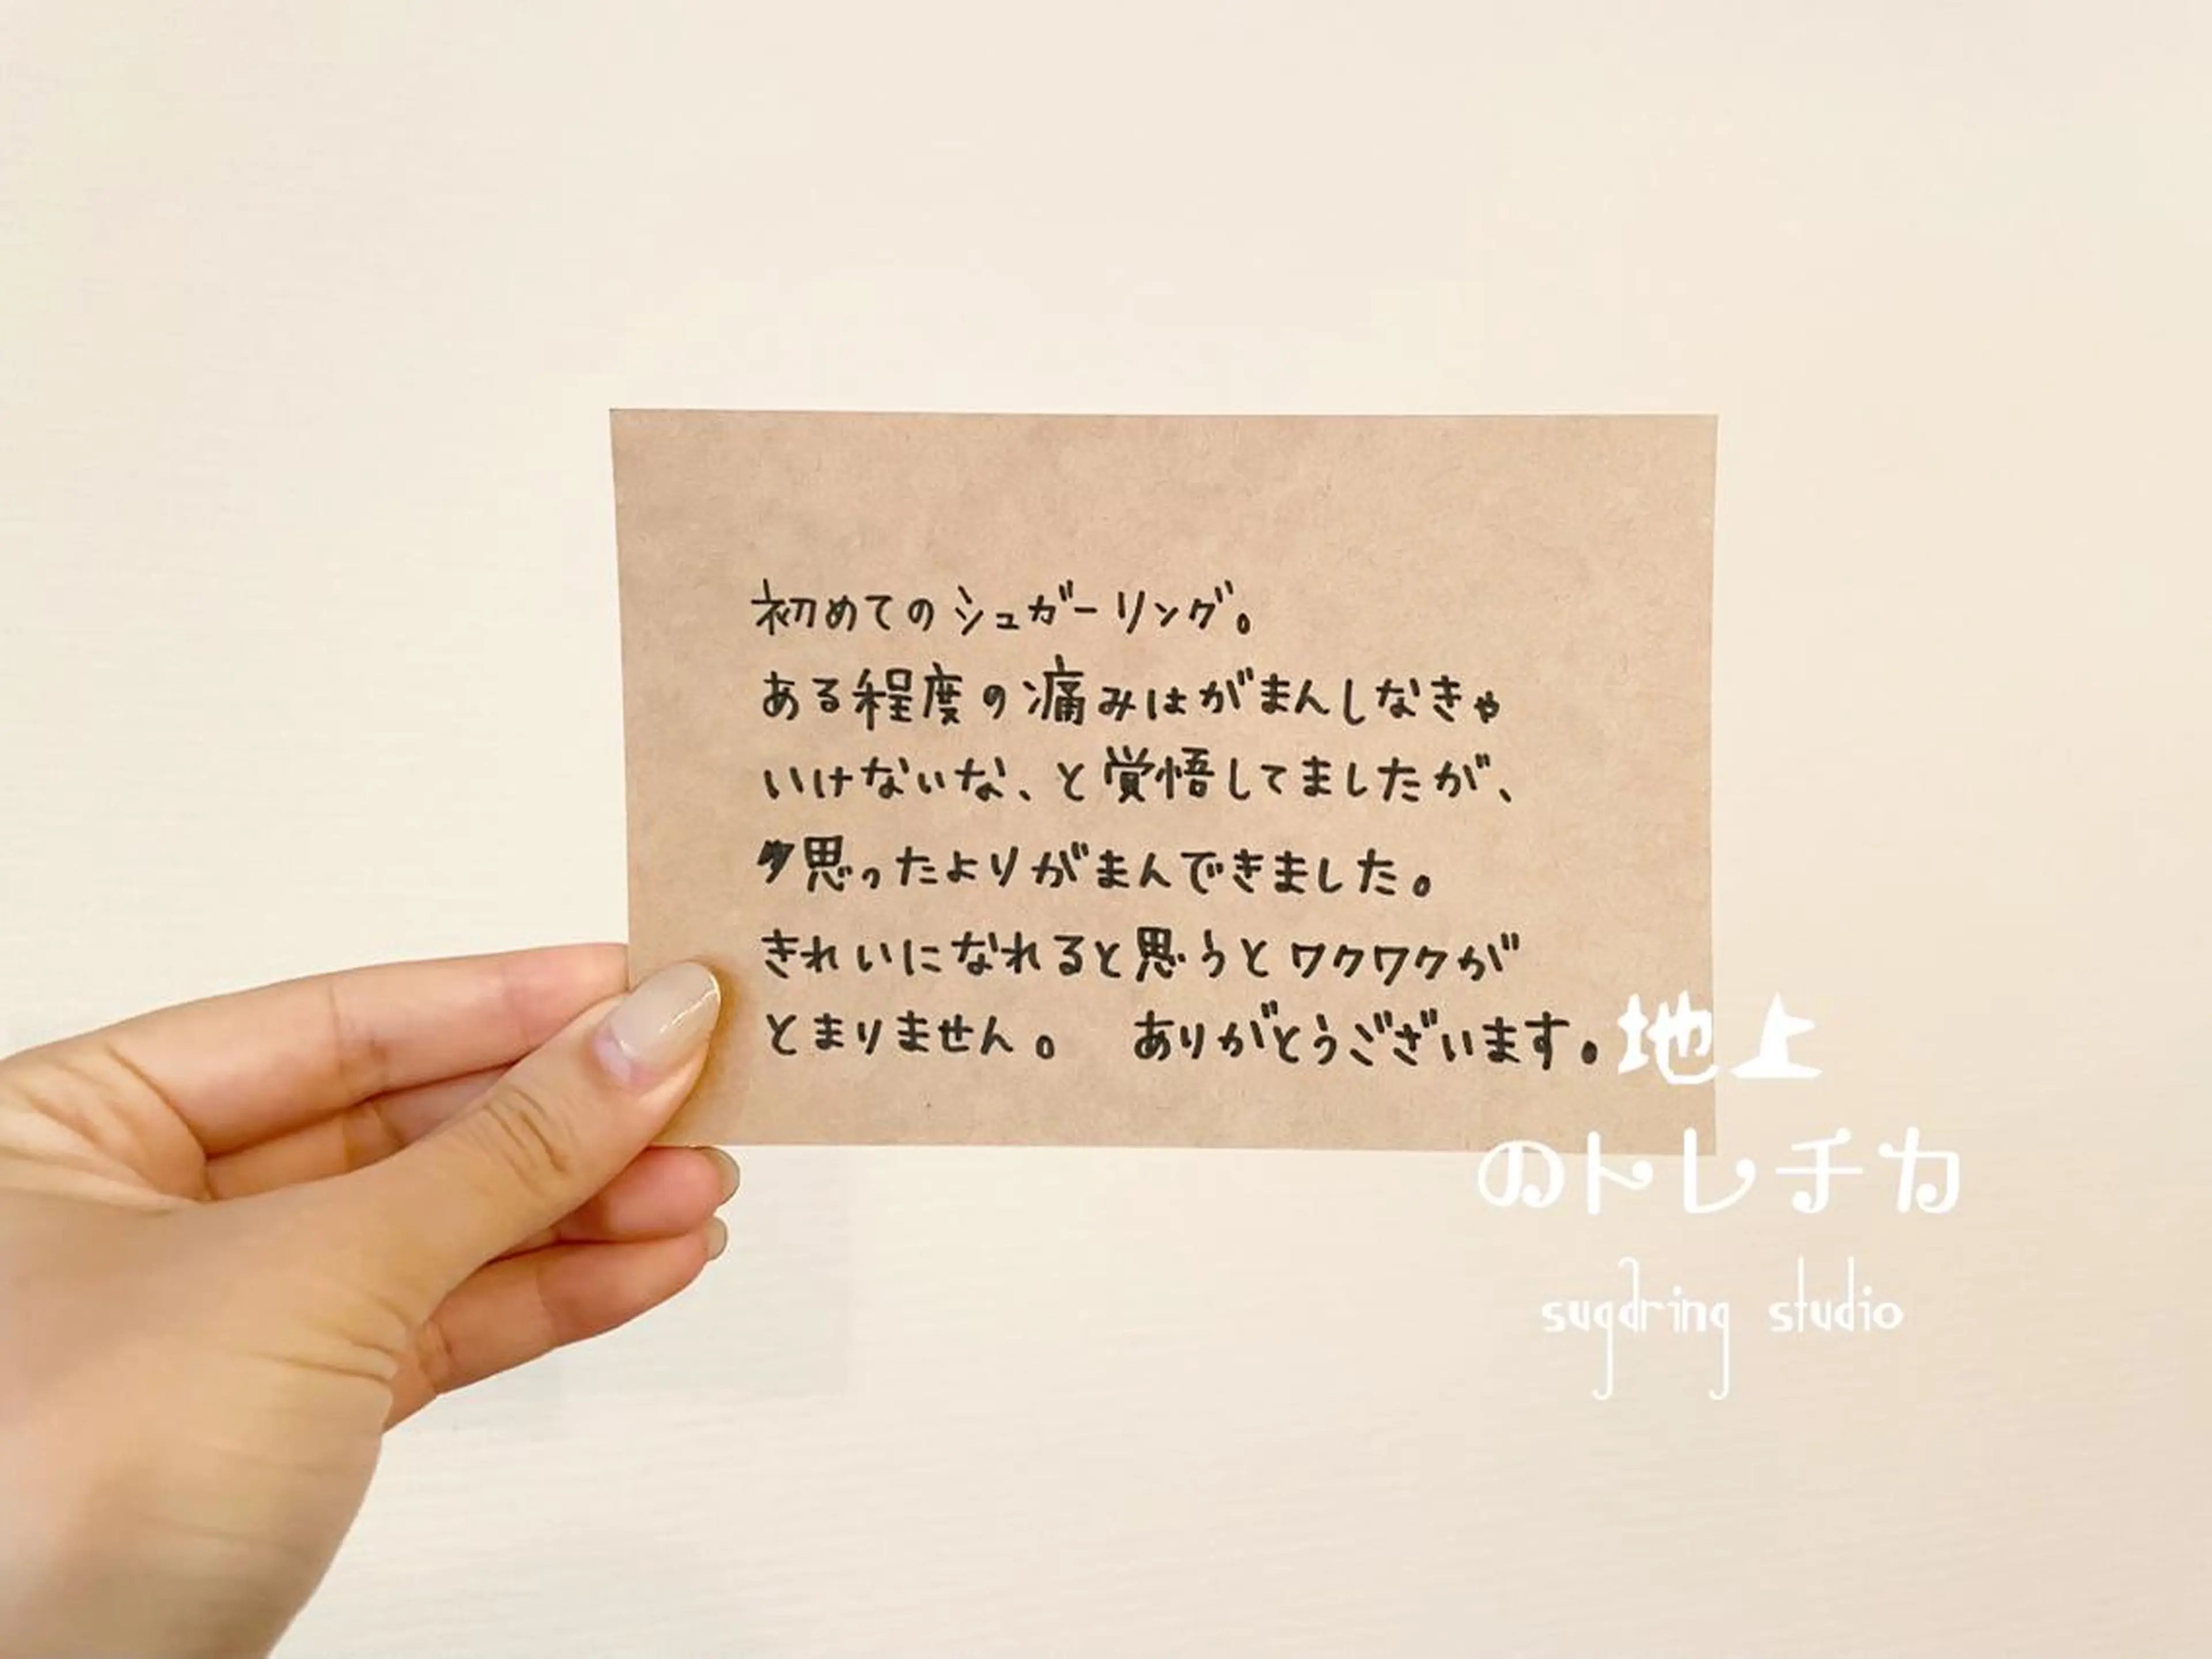 初めてのシュガーリング。
ある程度の痛みはがまんしなきゃ
いけないな、と覚悟してましたが、
思ったよりがまんできました。
きれいになれると思うとワクワクが
とまりません。 ありがとうございます。
地上
のトレチカ
sugaring studio